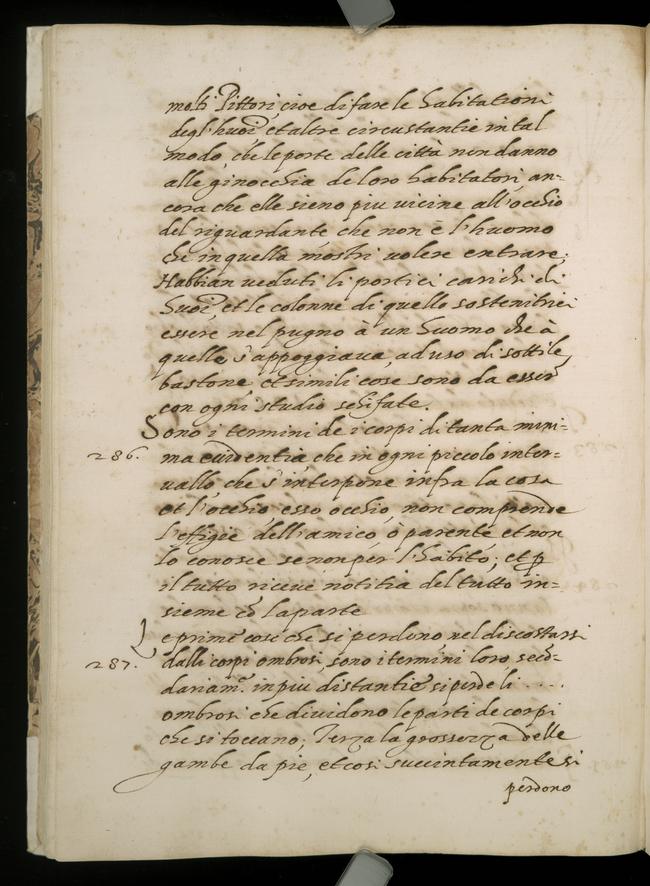 molti Pittori, cioe di fare le habitationi
degl'huoi et altre circustantie in tal
modo, che le porte delle città non danno
alle ginocchia de loro habitatori, an=
cora che elle sieno piu uicine all'occhio
del riguardante che non è l'huomo
che in quella mostri uolere entrare;
Habbian ueduti li portici carichi di
huoi et le colonne di quelle sostenitrici
essere nel pugno à un huomo che à
quelle s'appoggiaua, ad uso di sottile
bastone et simili cose sono da esser
con ogni studio schifate.
Sono i termini de i corpi di tanta mini=
286. ma euidentia che in ogni piccolo inter=
uallo che s'interpone infra la cosa
et l'occhio esso occhio, non comprende
l'effigie dell'amico, ò parente et non
lo conosce se non per l'habito, et p
il tutto riceue notitia del tutto in=
sieme cō la parte
Le prime cose che si perdono nel discostarsi
287. dalli corpi ombrosi, sono i termini loro, secō=
dariam.te in piu distantie si perde li ....
ombrosi che diuidono le parti de corpi
che si toccano; Terza la grossezza delle
gambe da pie, et cosi succintamente si
perdono